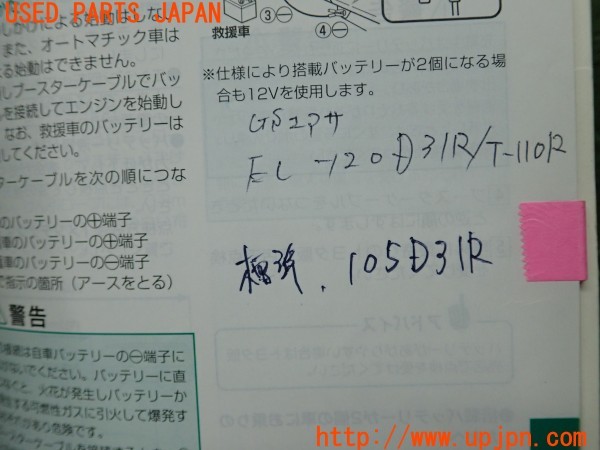 USED PARTS JAPAN
しがけによる始動はしな
また、オートマチック車は
る始動はできません。
しブースターケーブルでバッ
を接続してエンジンを始動し
なお、救援車のバッテリーは
してください。
ターケーブルを次の順につな
のバッテリーの⊕端子
車のバッテリーの⊕端子
車のバッテリーの⊖端子
で指示の箇所（アースをとる）
警告
自車バッテリーの⊖端子に
ないでください。バッテリーに直
なぐと、火花が発生しバッテリーか
する可燃性ガスに引火して爆発す
あり危険です。
救援車
③⊖
④⊖
※仕様により搭載バッテリーが2個になる場
合も12Vを使用します。
GSユアサ
EL-120D31R/T-110R
105D31R
アドバイス
http://www.upjpn.com